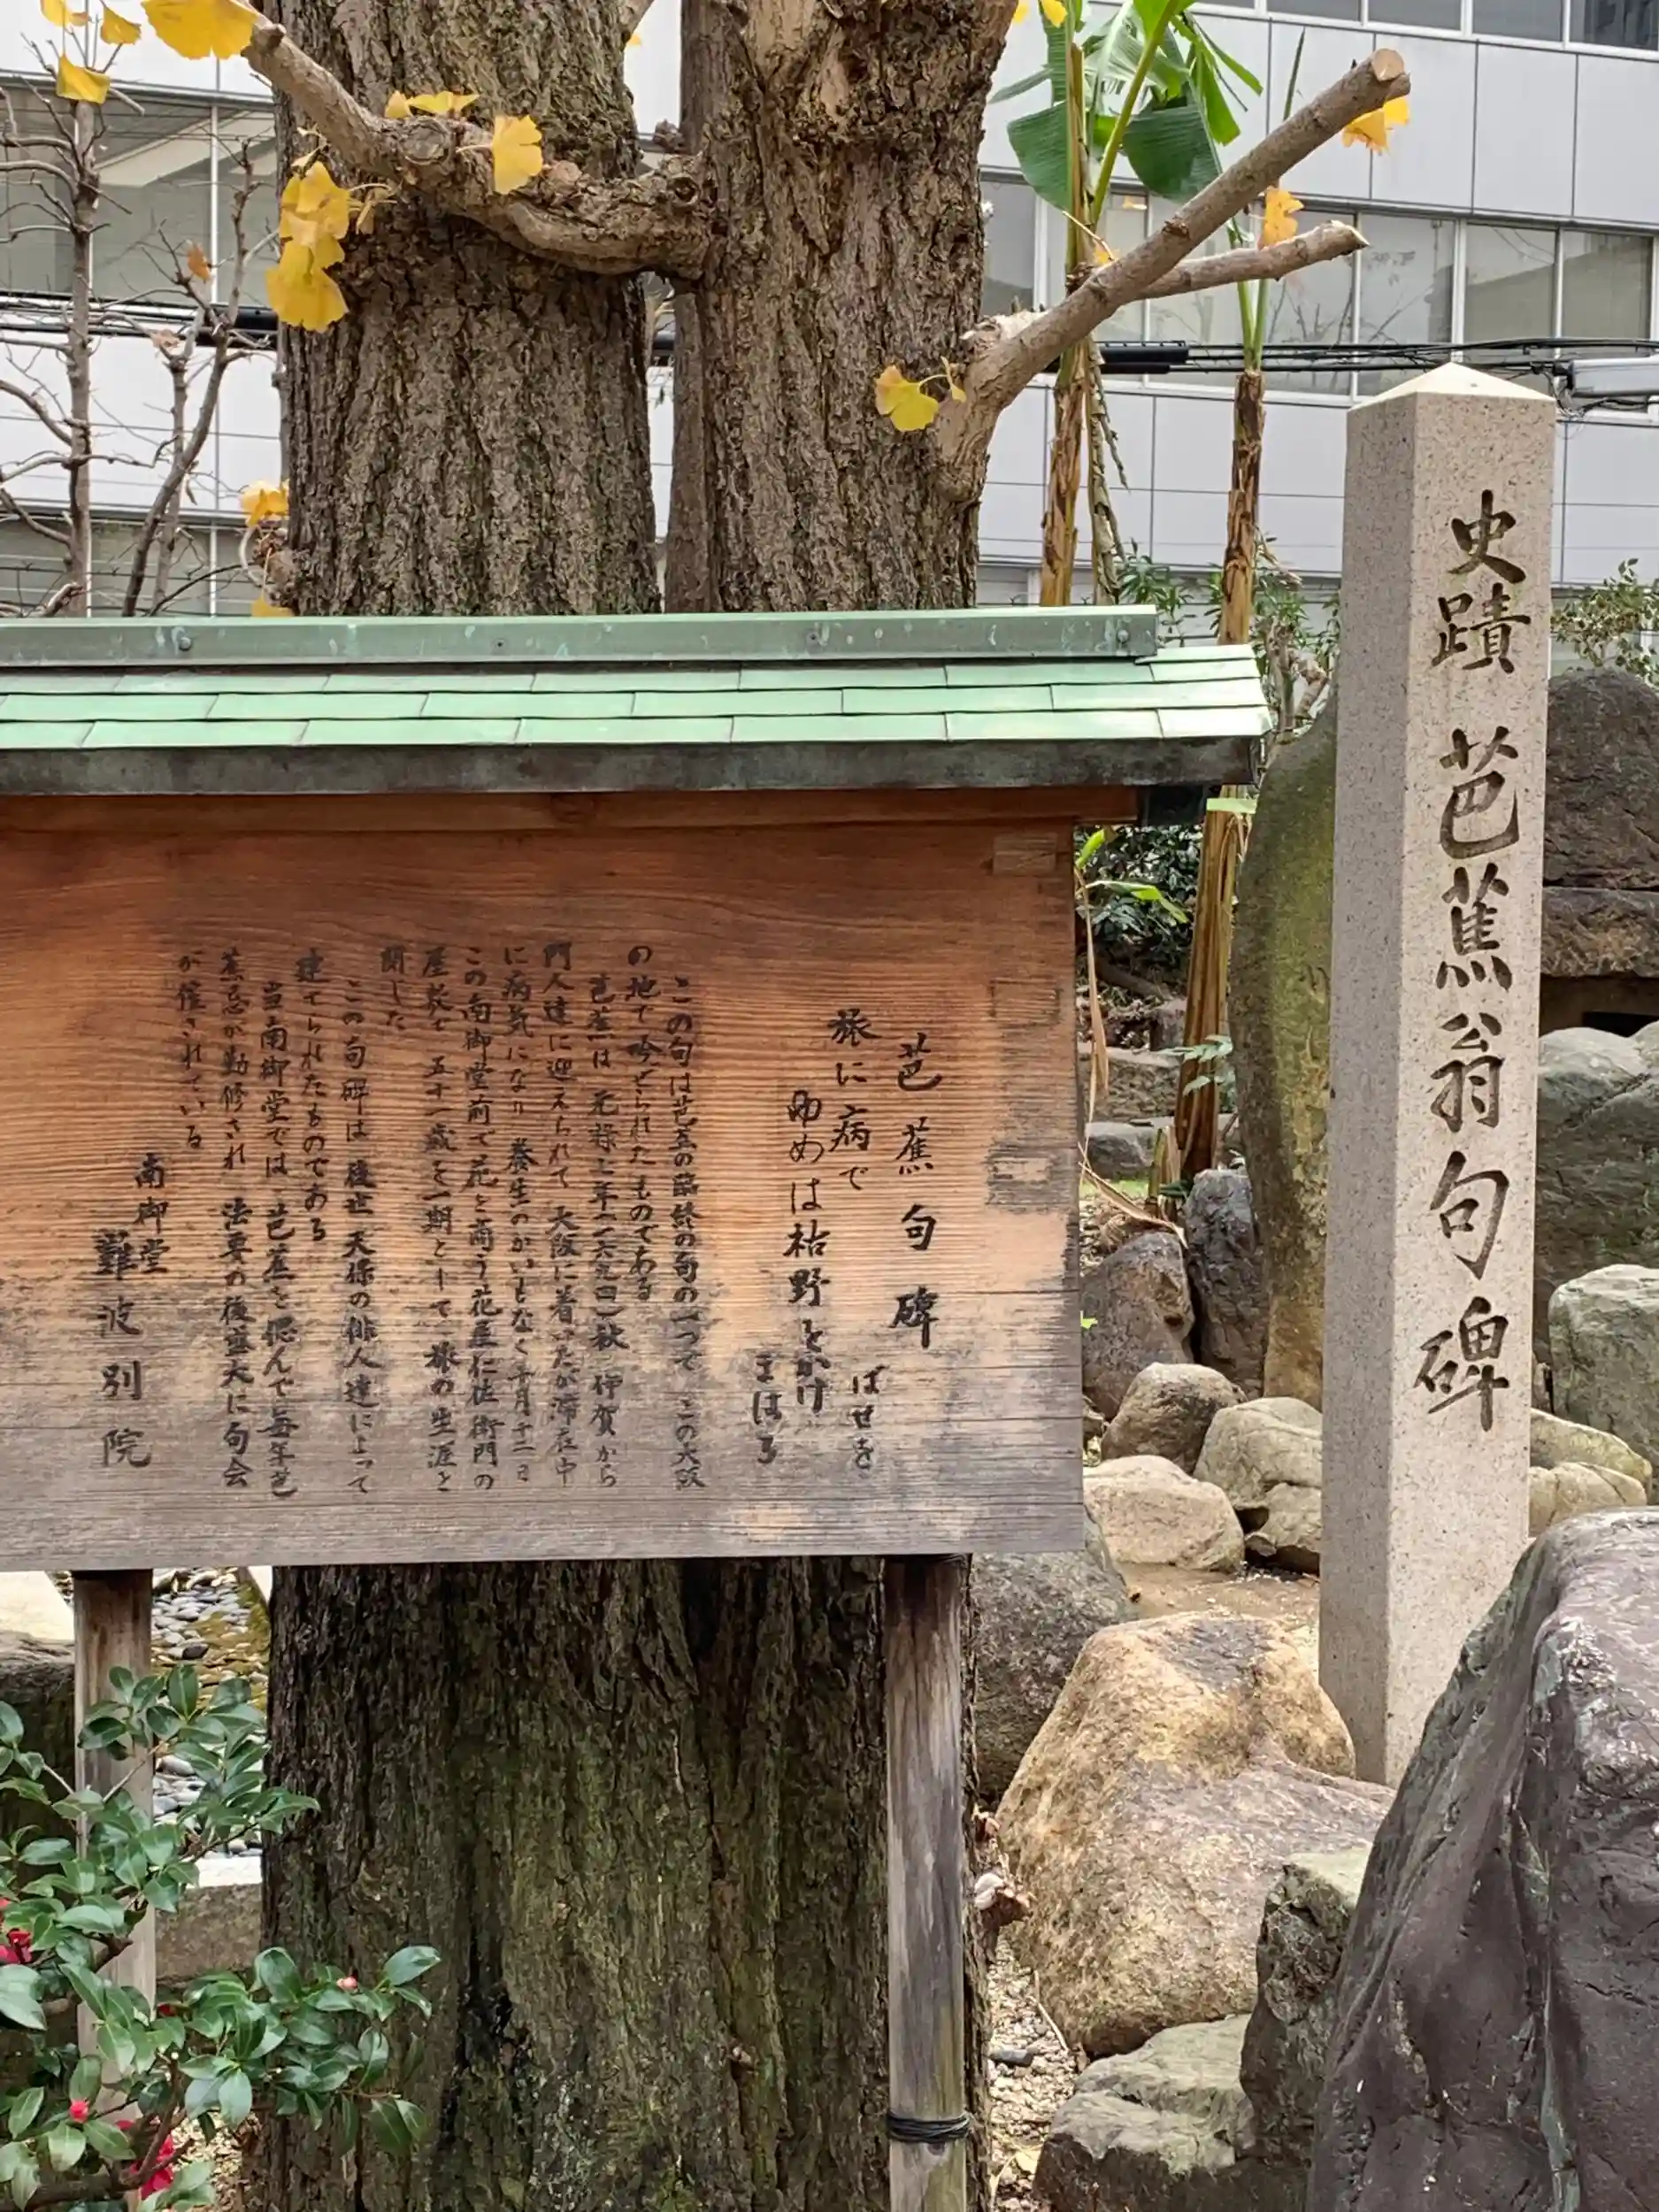 史蹟 芭蕉翁句碑
芭蕉句碑
ばせを
旅に病で
ゆめは枯野をかけ
まはる
この句は芭蕉の臨終の句の一つで この大阪
の地で吟ぜられたものである
芭蕉は 元禄七年(一六九四)秋 伊賀から
門人達に迎えられて 大阪に着いたが滞在中
に病気になり 養生のかいもなく十月十二日
この南御堂前で花と商う花屋仁佐衛門の
屋敷で 五十一歳を一期として 旅の生涯と
閉した
この句碑は 後世 天保の俳人達によって
建てられたものである
当南御堂では 芭蕉を偲んで毎年芭
蕉忌が勤修され 法要の後盛大に句会
が催されている
南御堂
難波別院